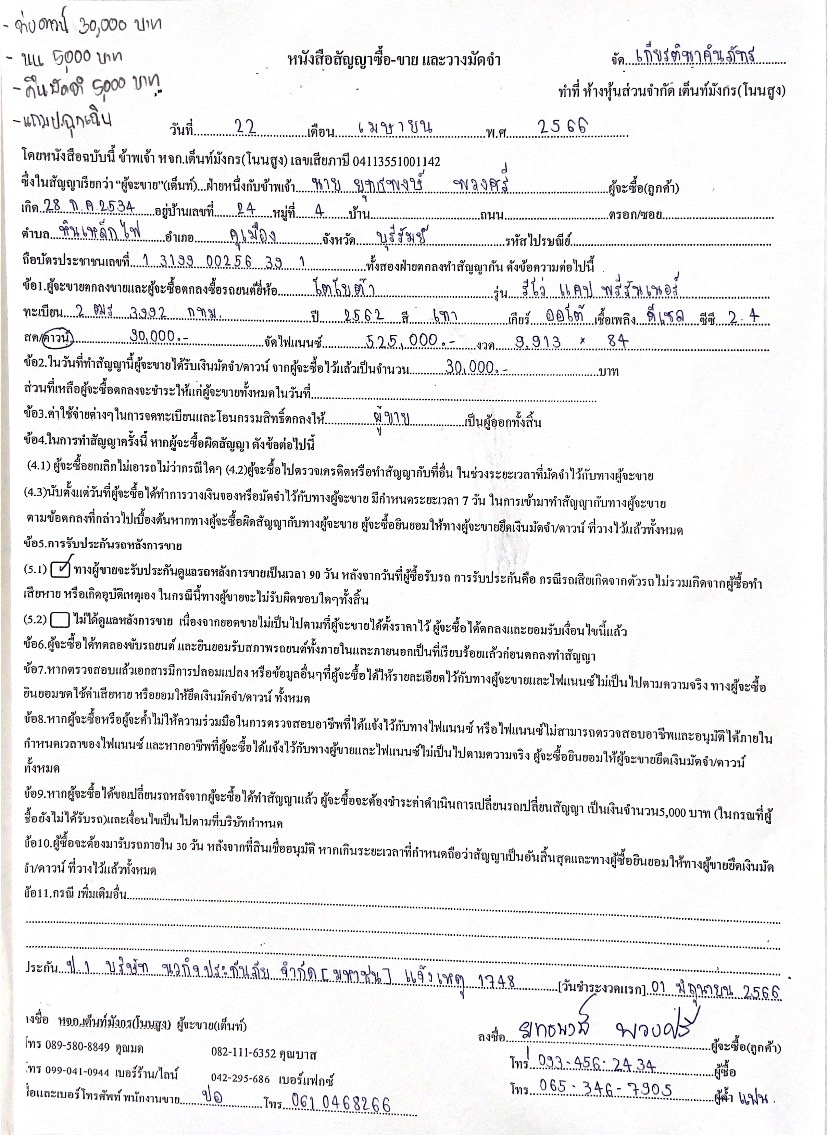 - ช่วยดาวน์ 30,000 บาท
- นน 5,000 บาท
- คืนมัดจำ 5,000 บาท
- แถมปลุกเฉิน
หนังสือสัญญาซื้อ-ขาย และวางมัดจำ
จัด เกียรตินาคินภัทร
ทำที่ ห้างหุ้นส่วนจำกัด เต็นท์มังกร(โนนสูง)
วันที่ 22 เดือน เมษายน พ.ศ 2566
โดยหนังสือฉบับนี้ ข้าพเจ้า หจก.เต็นท์มังกร(โนนสูง) เลขเสียภาปี 04113551001142
ซึ่งในสัญญาเรียกว่า "ผู้จะขาย"(เต็นท์)...ฝ่ายหนึ่งกับข้าพเจ้า นาย ยุทธพงษ์ พวงศรี ผู้จะซื้อ(ลูกค้า)
เกิด 28 ก.ค.2534 อยู่บ้านเลขที่ 24 หมู่ที่ 4 บ้าน ถนน ตรอก/ซอย
ตำบล หินเหล็กไฟ อำเภอ คูเมือง จังหวัด บุรีรัมย์ รหัสไปรษณีย์
ถือบัตรประชาชนเลขที่ 1 3199 00256 39 1 ทั้งสองฝ่ายตกลงทำสัญญากัน ดังข้อความต่อไปนี้
ข้อ1.ผู้จะขายตกลงขายและผู้จะซื้อตกลงซื้อรถยนต์ยี่ห้อ โตโยต้า รุ่น รีโว่ แคป พรีรันเนอร์
ทะเบียน 2 ฒร 3992 กทม. ปี 2562 สี เทา เกียร์ ออโต้ เชื้อเพลิง ดีเซล ซีซี 2.4
สด/ดาวน์ 30,000.- จัดไฟแนนซ์ 525,000.- งวด 9,913 × 84
ข้อ2.ในวันที่ทำสัญญานี้ผู้จะขายได้รับเงินมัดจำ/ดาวน์ จากผู้จะซื้อไว้แล้วเป็นจำนวน 30,000.- บาท
ส่วนที่เหลือผู้จะซื้อตกลงจะชำระให้แก่ผู้จะขายทั้งหมดในวันที่
ข้อ3.ค่าใช้จ่ายต่างๆในการจดทะเบียนและโอนกรรมสิทธิ์ตกลงให้ ผู้ขาย เป็นผู้ออกทั้งสิ้น
ข้อ4.ในการทำสัญญาครั้งนี้ หากผู้จะซื้อผิดสัญญา ดังข้อต่อไปนี้
(4.1) ผู้จะซื้อยกเลิกไม่เอารถไม่ว่ากรณีใดๆ (4.2)ผู้จะซื้อไปตรวจเครดิตหรือทำสัญญากับที่อื่น ในช่วงระยะเวลาที่มัดจำไว้กับทางผู้จะขาย
(4.3)นับตั้งแต่วันที่ผู้จะซื้อได้ทำการวางเงินจองหรือมัดจำไว้กับทางผู้จะขาย มีกำหนดระยะเวลา 7 วัน ในการเข้ามาทำสัญญากับทางผู้จะขาย
ตามข้อตกลงที่กล่าวไปเบื้องต้นหากทางผู้จะซื้อผิดสัญญากับทางผู้จะขาย ผู้จะซื้อยินยอมให้ทางผู้จะขายยึดเงินมัดจำ/ดาวน์ ที่วางไว้แล้วทั้งหมด
ข้อ5.การรับประกันรถหลังการขาย
(5.1) ✓ ทางผู้ขายจะรับประกันดูแลรถหลังการขายเป็นเวลา 90 วัน หลังจากวันที่ผู้ซื้อรับรถ การรับประกันคือ กรณีรถเสียเกิดจากตัวรถไม่รวมเกิดจากผู้ซื้อทำ
เสียหาย หรือเกิดอุบัติเหตุเอง ในกรณีนี้ทางผู้ขายจะไม่รับผิดชอบใดๆทั้งสิ้น
(5.2) ไม่ได้ดูแลหลังการขาย เนื่องจากยอดขายไม่เป็นไปตามที่ผู้จะขายได้ตั้งราคาไว้ ผู้จะซื้อได้ตกลงและยอมรับเงื่อนไขนี้แล้ว
ข้อ6.ผู้จะซื้อได้ทดลองขับรถยนต์ และยินยอมรับสภาพรถยนต์ทั้งภายในและภายนอกเป็นที่เรียบร้อยแล้วก่อนตกลงทำสัญญา
ข้อ7.หากตรวจสอบแล้วเอกสารมีการปลอมแปลง หรือข้อมูลอื่นๆที่ผู้จะซื้อได้ให้รายละเอียดไว้กับทางผู้จะขายและไฟแนนซ์ไม่เป็นไปตามความจริง ทางผู้จะซื้อ
ยินยอมชดใช้ค่าเสียหาย หรือยอมให้ยึดเงินมัดจำ/ดาวน์ ทั้งหมด
ข้อ8.หากผู้จะซื้อหรือผู้จะค้ำไม่ให้ความร่วมมือในการตรวจสอบอาชีพที่ได้แจ้งไว้กับทางไฟแนนซ์ หรือไฟแนนซ์ไม่สามารถตรวจสอบอาชีพและอนุมัติได้ภายใน
กำหนดเวลาของไฟแนนซ์ และหากอาชีพที่ผู้จะซื้อได้แจ้งไว้กับทางผู้ขายและไฟแนนซ์ไม่เป็นไปตามความจริง ผู้จะซื้อยินยอมให้ผู้จะขายยึดเงินมัดจำ/ดาวน์
ทั้งหมด
ข้อ9.หากผู้จะซื้อได้ขอเปลี่ยนรถหลังจากผู้จะซื้อได้ทำสัญญาแล้ว ผู้จะซื้อจะต้องชำระค่าดำเนินการเปลี่ยนรถเปลี่ยนสัญญา เป็นเงินจำนวน5,000 บาท (ในกรณที่ผู้
ซื้อยังไม่ได้รับรถ)และเงื่อนไขเป็นไปตามที่บริษัทกำหนด
ข้อ10.ผู้ซื้อจะต้องมารับรถภายใน 30 วัน หลังจากที่สินเชื่ออนุมัติ หากเกินระยะเวลาที่กำหนดถือว่าสัญญาเป็นอันสิ้นสุดและทางผู้ซื้อยินยอมให้ทางผู้ขายยึดเงินมัด
จำ/ดาวน์ ที่วางไว้แล้วทั้งหมด
ข้อ11.กรณี เพิ่มเติมอื่น
ประกัน ป.1 บริษัท นวกิจประกันภัย จำกัด [มหาชน] แจ้งเหตุ 1748 [วันชำระงวดแรก] 01 มิถุนายน 2566
งชื่อ หจก.เต็นท์มังกร(โนนสูง) ผู้จะขาย(เต็นท์)
ลงชื่อ ยุทธพงษ์ พวงศรี ผู้จะซื้อ(ลูกค้า)
โทร 089-580-8849 คุณมด 082-111-6352 คุณบาส
โทร 093-456-2434 ผู้ซื้อ
โทร 099-041-0944 เบอร์ร้าน/ไลน์ 042-295-686 เบอร์แฟกซ์
โทร 065-346-7905 ผู้ค้ำ แฟน
ชื่อและเบอร์โทรศัพท์ พนักงานขาย ปอ โทร 061 0468266